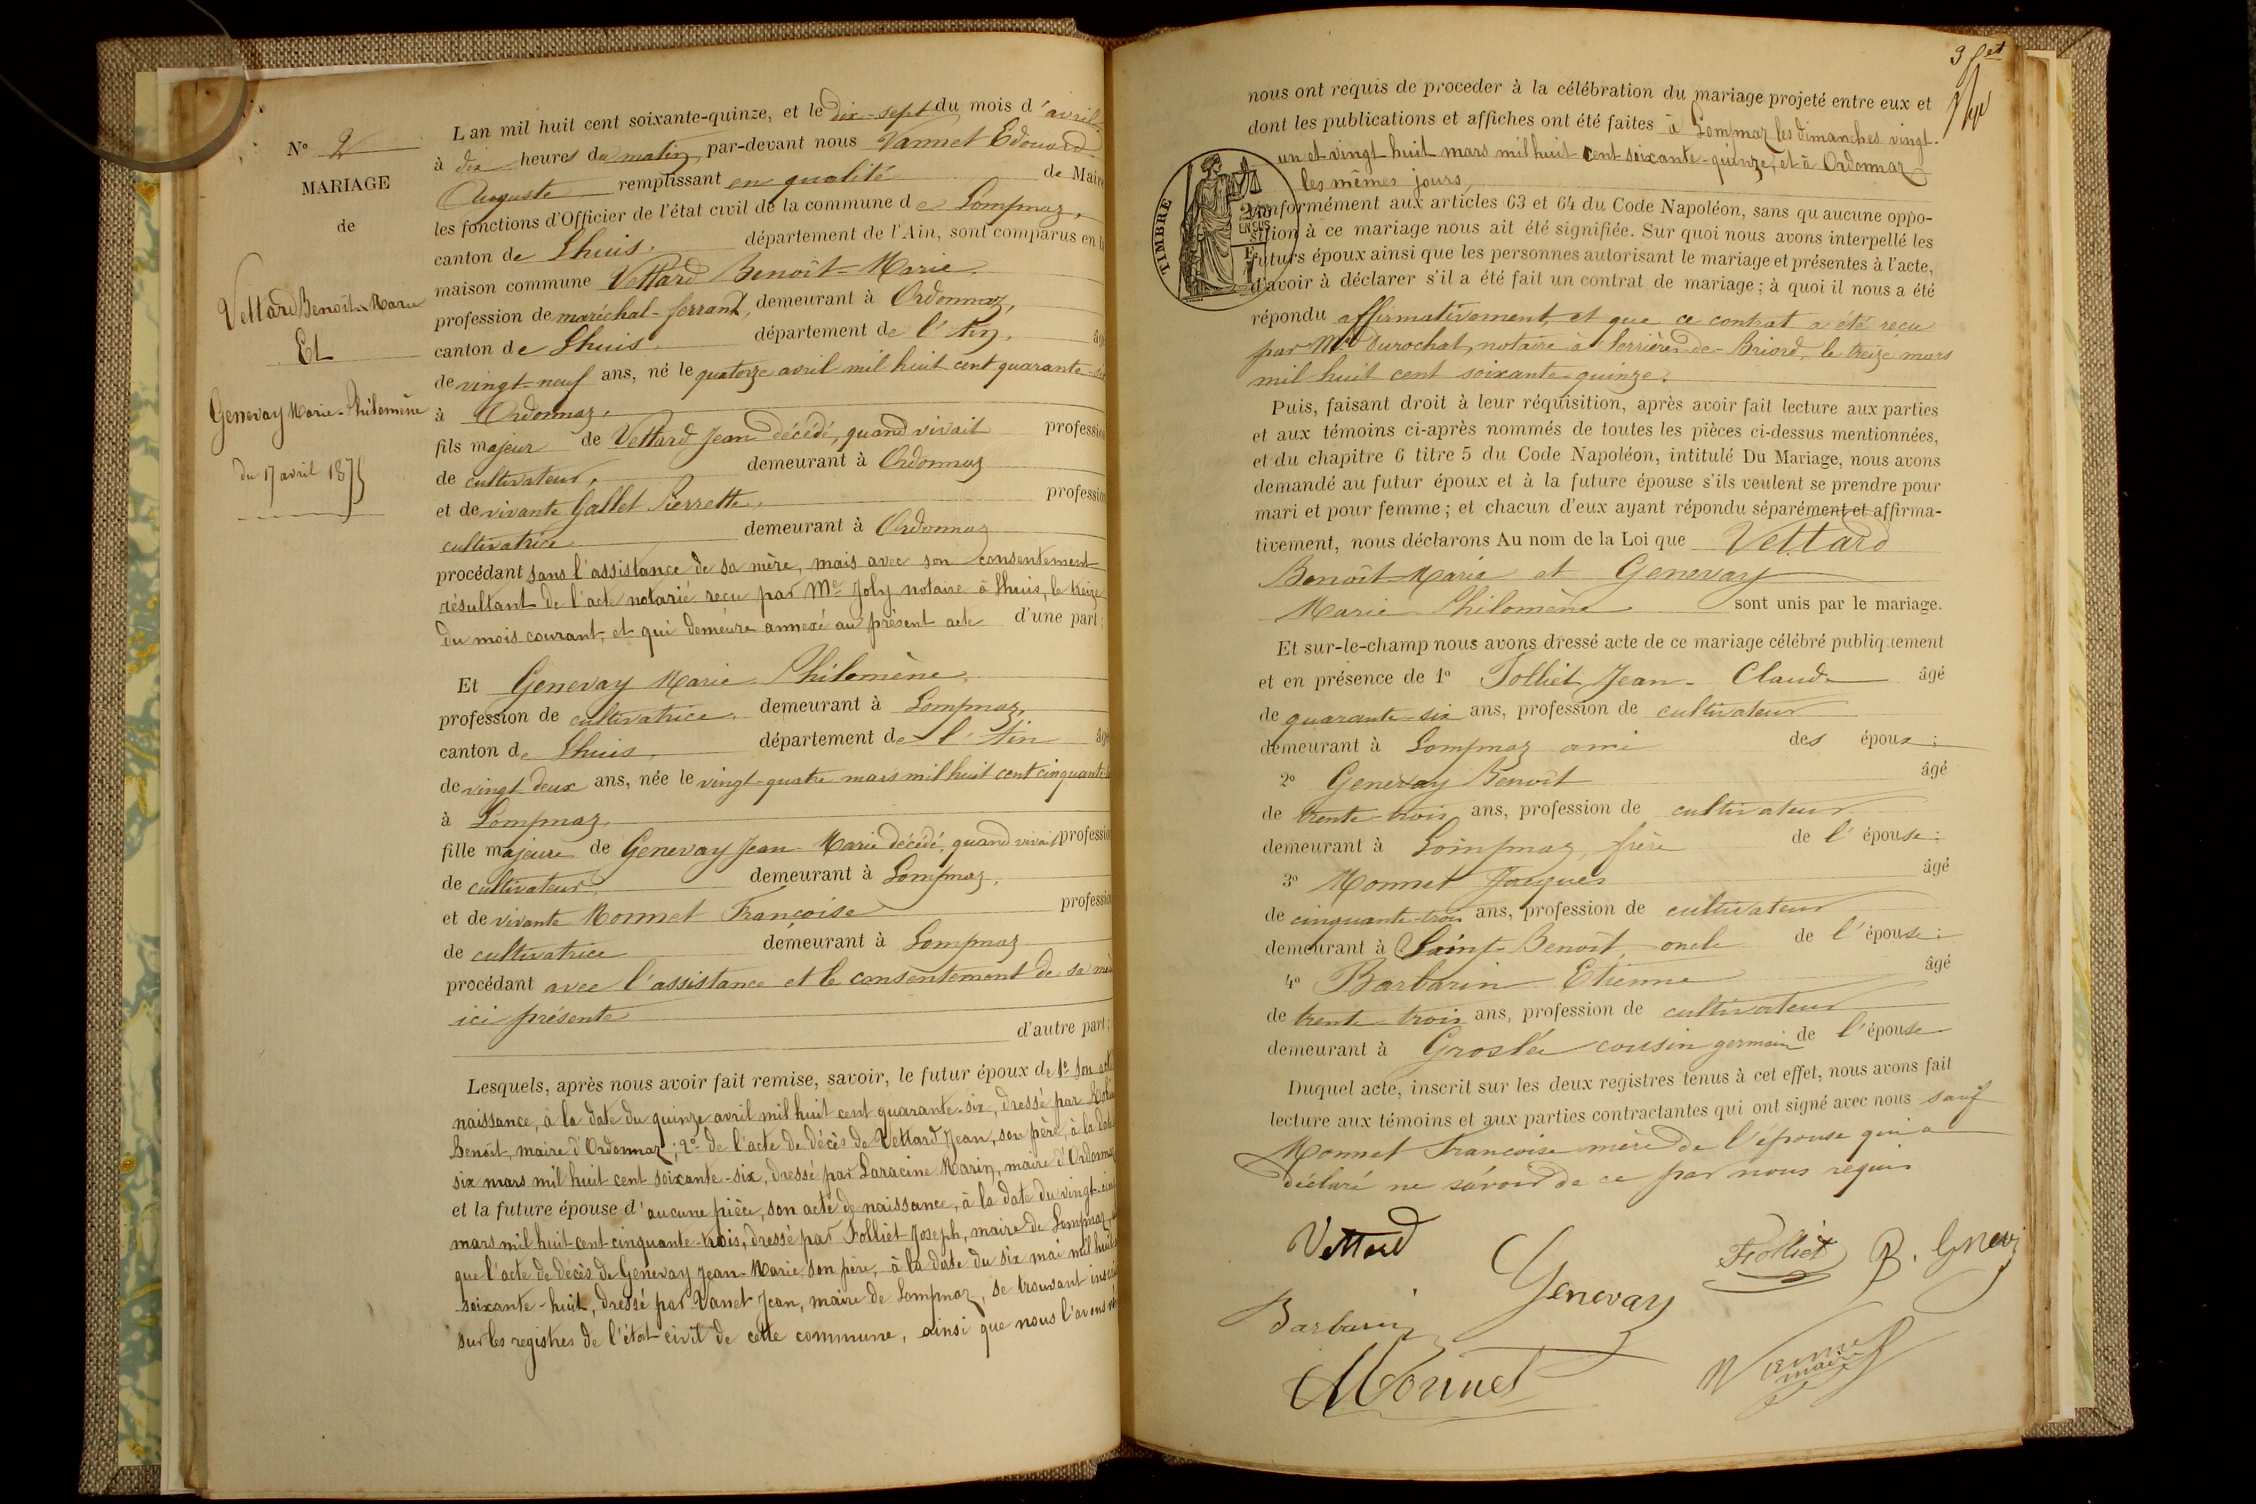 N° 2
MARIAGE
de
Vettard Benoît-Marie
Et
Genevay Marie-Philomène
du 17 avril 1875
L'an mil huit cent soixante-quinze, et le dix-sept du mois d'avril
à dix heures du matin, par-devant nous Vannet Edouard
Auguste remplissant en qualité de Maire
les fonctions d'Officier de l'état civil de la commune de Lompnaz,
canton de Lhuis. département de l'Ain, sont comparus en la
maison commune Vettard Benoît-Marie,
profession de maréchal-ferrant, demeurant à Ordonnaz,
canton de Lhuis. département de l'Ain, âgé
de vingt-neuf ans, né le quatorze avril mil huit cent quarante-six
à Ordonnaz,
fils majeur de Vettard Jean décédé, quand vivait profession
de cultivateur, demeurant à Ordonnaz
et de vivante Gallet Pierrette, profession
cultivatrice demeurant à Ordonnaz
procédant sans l'assistance de sa mère, mais avec son consentement
résultant de l'acte notarié reçu par Me Joly notaire à Lhuis, le treize
du mois courant, et qui demeure annexé au présent acte d'une part;
Et Genevay Marie Philomène,
profession de cultivatrice, demeurant à Lompnaz,
canton de Lhuis, département de l'Ain âgé
de vingt deux ans, née le vingt-quatre mars mil huit cent cinquante
à Lompnaz,
fille majeure de Genevay Jean-Marie décédé, quand vivait profession
de cultivateur, demeurant à Lompnaz,
et de vivante Monnet Françoise profession
de cultivatrice demeurant à Lompnaz
procédant avec l'assistance et le consentement de sa mère
ici présente
d'autre part;
Lesquels, après nous avoir fait remise, savoir, le futur époux de 1° Son acte
naissance, à la date du quinze avril mil huit cent quarante-six, dressé par
Benoît, maire d'Ordonnaz; 2° de l'acte de décès de Vettard Jean, son père, à la date
six mars mil huit cent soixante-six, dressé par Laracine Marin, maire d'Ordonnaz
et la future épouse d'aucune pièce, son acte de naissance, à la date du vingt-cinq
mars mil huit-cent cinquante-trois, dressé par Folliet Joseph, maire de Lompnaz,
que l'acte de décès de Genevay Jean-Marie son père, à la date du six mai mil huit
soixante-huit, dressé par Vanet Jean, maire de Lompnaz, se trouvant inscrits
sur les registres de l'état-civil de cette commune, ainsi que nous l'avons
nous ont requis de proceder à la célébration du mariage projeté entre eux et
dont les publications et affiches ont été faites à Lompnaz les dimanches vingt-
un et vingt huit mars mil huit cent soixante-quinze, et à Ordonnaz
les mêmes jours,
TIMBRE
conformément aux articles 63 et 64 du Code Napoléon, sans qu'aucune oppo-
sition à ce mariage nous ait été signifiée. Sur quoi nous avons interpellé les
futurs époux ainsi que les personnes autorisant le mariage et présentes à l'acte,
d'avoir à déclarer s'il a été fait un contrat de mariage; à quoi il nous a été
répondu affirmativement, et que ce contrat a été reçu
par Me Durochat, notaire à Serrières-de-Briord, le treize mars
mil huit cent soixante-quinze.
Puis, faisant droit à leur réquisition, après avoir fait lecture aux parties
et aux témoins ci-après nommés de toutes les pièces ci-dessus mentionnées,
et du chapitre 6 titre 5 du Code Napoléon, intitulé Du Mariage, nous avons
demandé au futur époux et à la future épouse s'ils veulent se prendre pour
mari et pour femme; et chacun d'eux ayant répondu séparément et affirma-
tivement, nous déclarons Au nom de la Loi que Vettard
Benoît-Marie et Genevay
Marie Philomène sont unis par le mariage.
Et sur-le-champ nous avons dressé acte de ce mariage célébré publiquement
et en présence de 1° Folliet Jean-Claude âgé
de quarante-six ans, profession de cultivateur
demeurant à Lompnaz ami des époux;
2° Genevay Benoît âgé
de trente-trois ans, profession de cultivateur
demeurant à Lompnaz, frère de l'épouse;
3° Monnet Jacques âgé
de cinquante-trois ans, profession de cultivateur
demeurant à Saint-Benoît, oncle de l'épouse;
4° Barbarin Etienne âgé
de trente-trois ans, profession de cultivateur
demeurant à Groslée cousin germain de l'épouse
Duquel acte, inscrit sur les deux registres tenus à cet effet, nous avons fait
lecture aux témoins et aux parties contractantes qui ont signé avec nous sauf
Monnet Françoise mère de l'épouse qui a
déclaré ne savoir de ce par nous requis
Vettard
Genevay
Folliet
B. Genevay
Barbarin
Monnet
maire